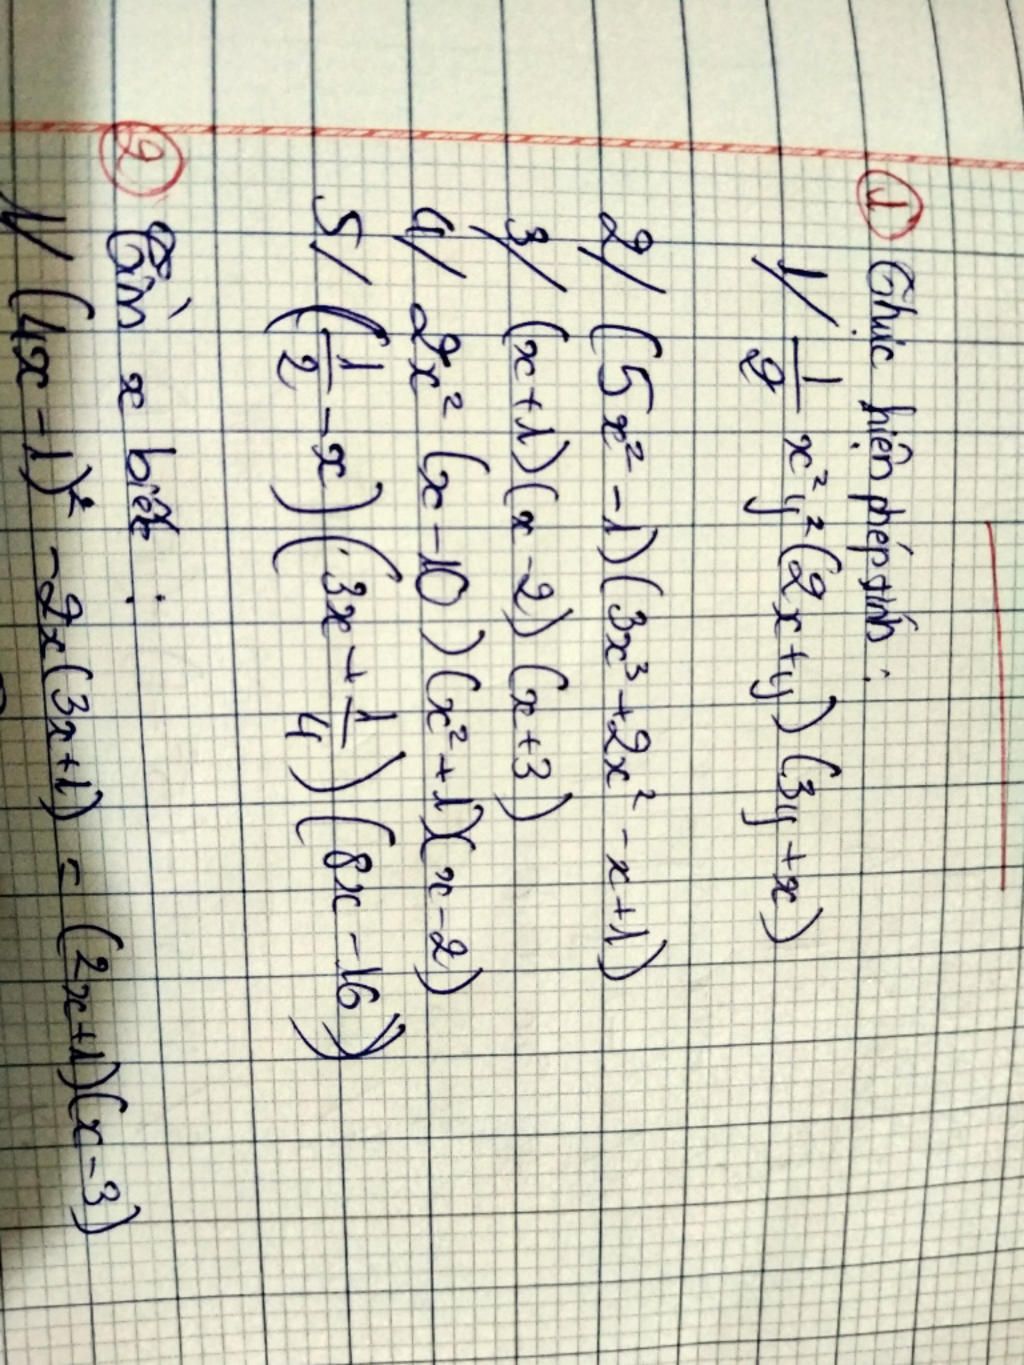 ① Thực hiện phép tính :
1/ 1/2 x²y²(2x+y)(3y+x)
2/ (5x²-1)(3x³+2x²-x+1)
3/ (x+1)(x-2)(x+3)
4/ 2x²(x-10)(x²+1)(x-2)
5/ (1/2-x)(3x+1/4)(8x-16)
② Tìm x biết :
1/ (4x-1)²-2x(3x+1) = (2x+1)(x-3)